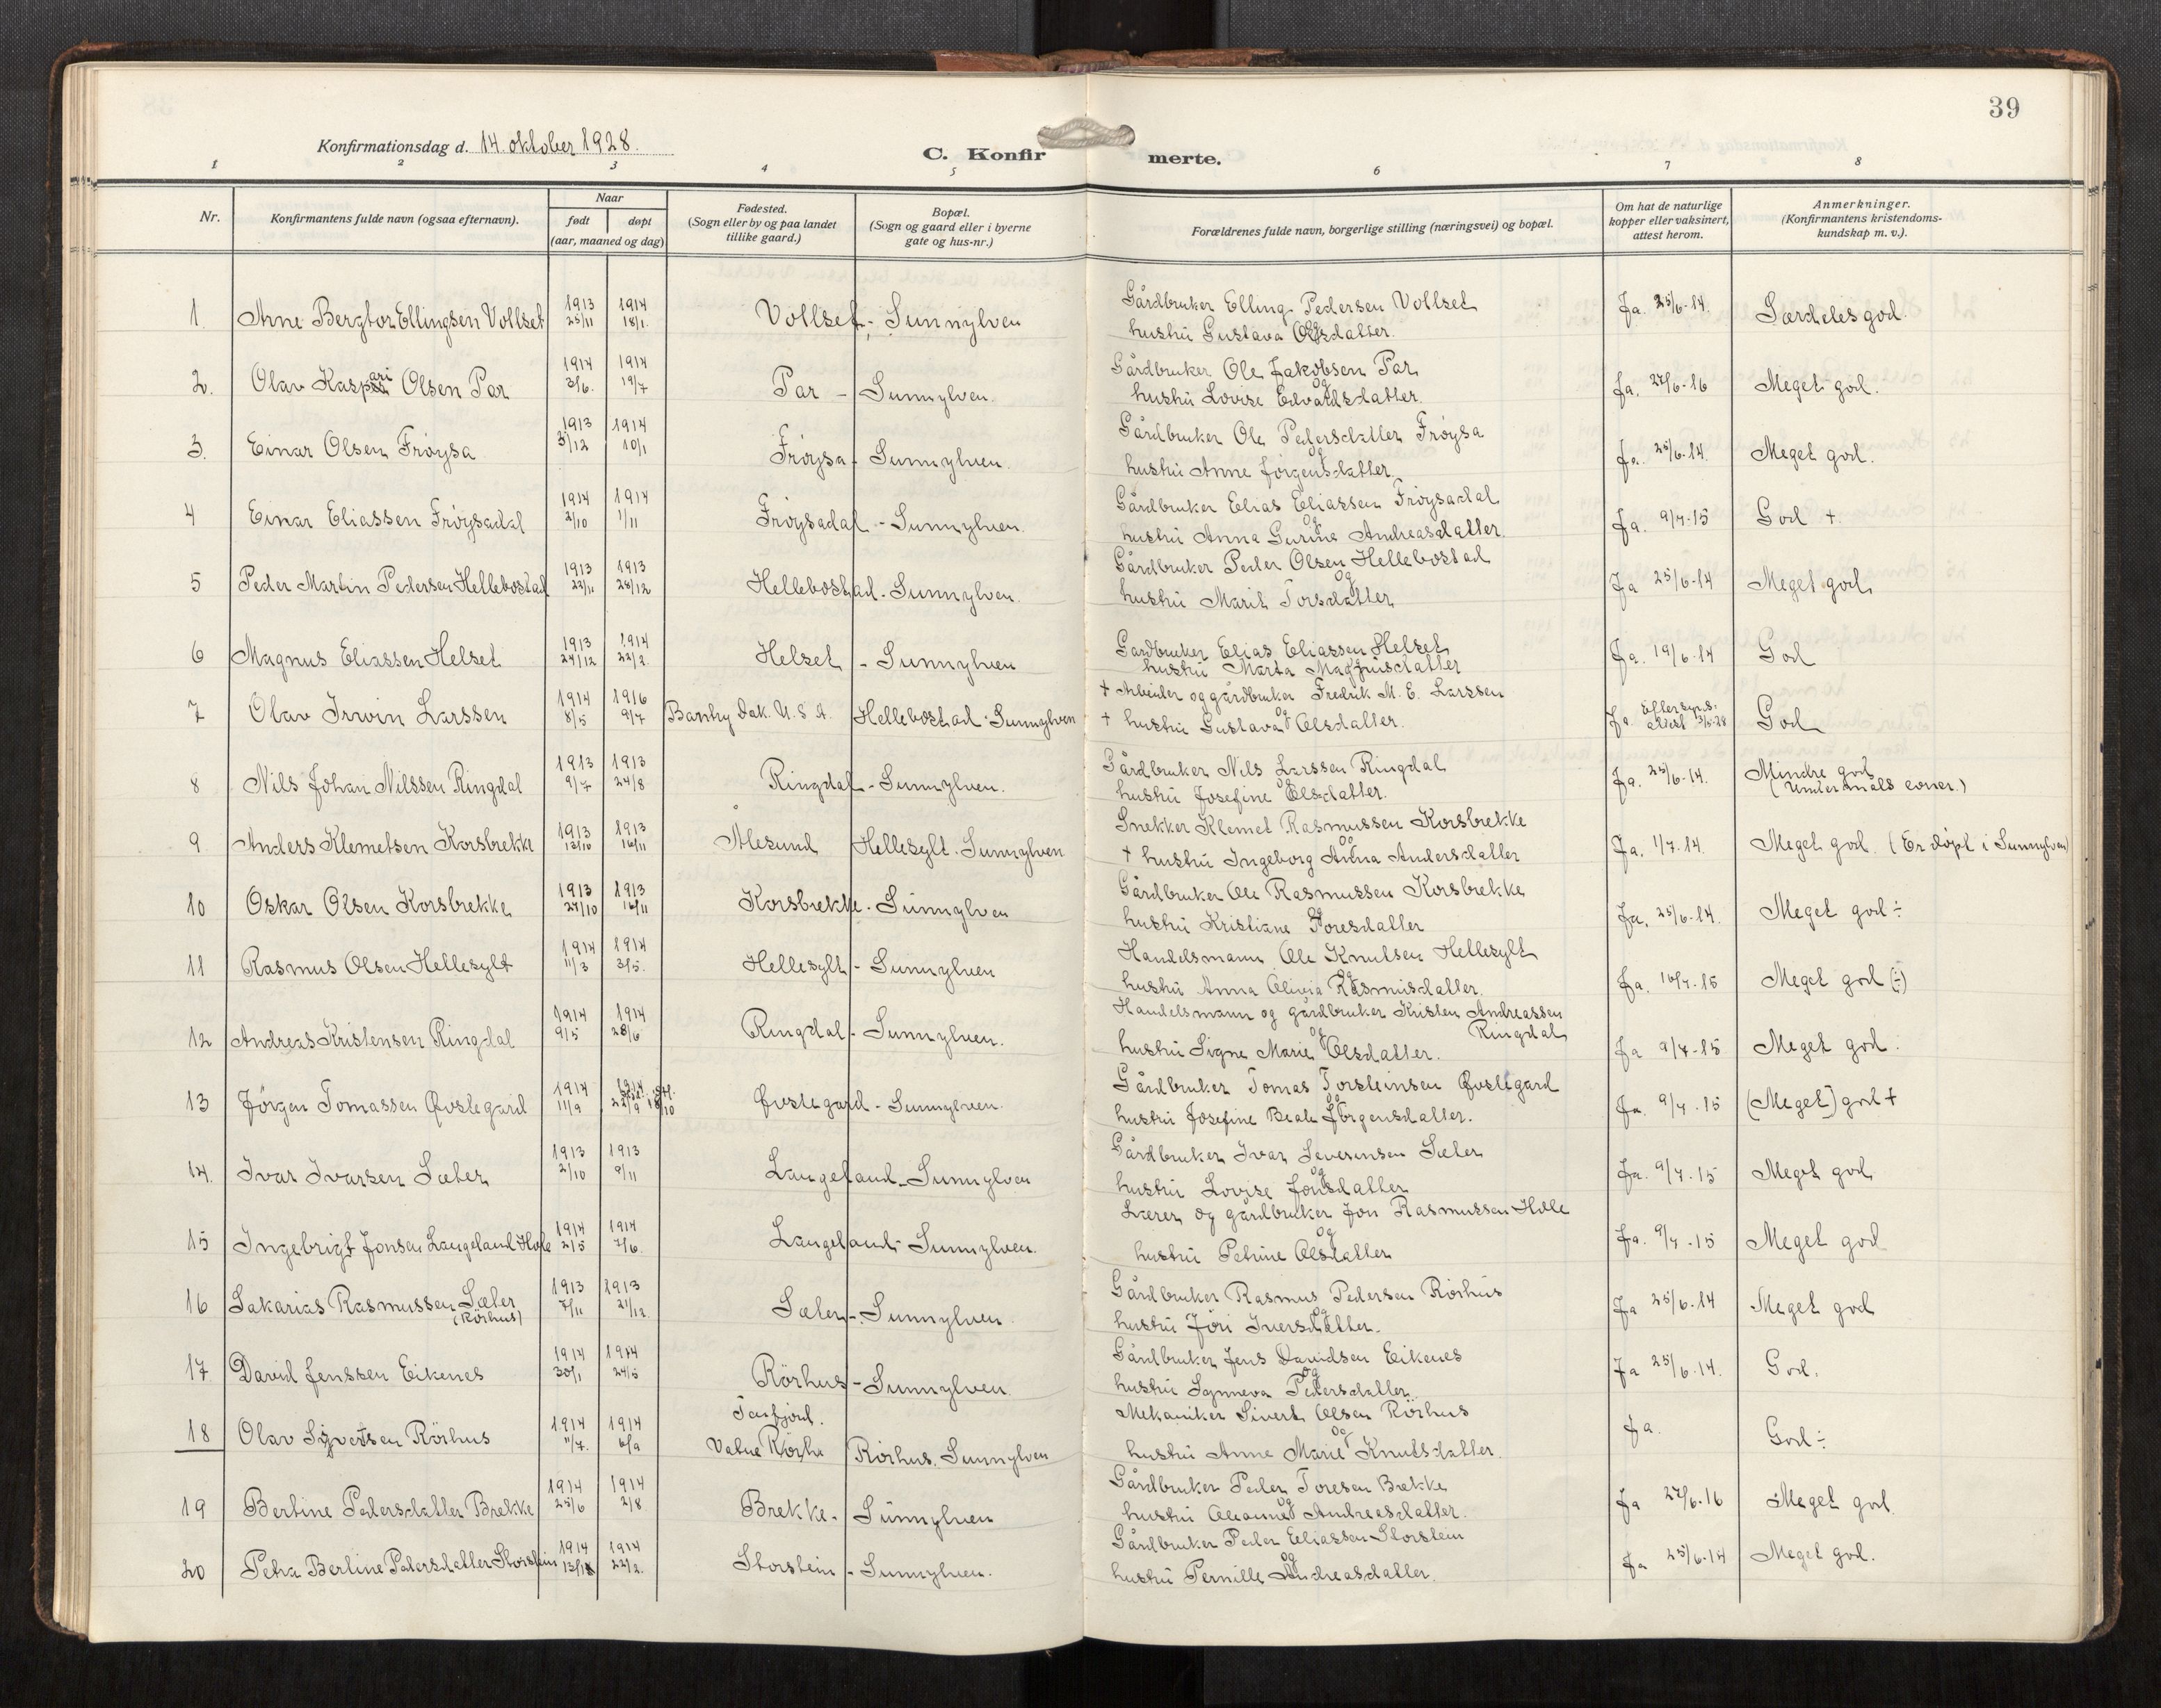 39
Konfirmationsdag d. 14. oktober 1928.
C. Konfirmerte.
1 2 3 4 5 6 7 8
Nr.
Konfirmantens fulde navn (ogsaa efternavn).
Naar
født døpt
(aar, maaned og dag)
Fødested.
(Sogn eller by og paa landet
tillike gaard.)
Bopæl.
(Sogn og gaard eller i byerne
gate og hus-nr.)
Forældrenes fulde navn, borgerlige stilling (næringsvei) og bopæl.
Om hat de naturlige
kopper eller vaksinert,
attest herom.
Anmerkninger.
(Konfirmantens kristendoms-
kundskap m. v.).
1. Arne Bergtor Ellingsen Vollset 1913 25/11 1914 18/1. Vollset - Sunnylven Gårdbruker Elling Pedersen Vollset og
hustru Gustava Olsdatter. Ja. 25/6-14. Særdeles god.
2. Olav Kaspari Olsen Par 1914 3/6. 1914 19/7 Par - Sunnylven. Gårdbruker Ole Jakobsen Par og
hustru Lovise Edvardsdatter. Ja. 27/6-16 Meget god.
3. Einar Olsen Frøysa 1913 3/12 1914 10/1 Frøysa - Sunnylven. Gårdbruker Ole Pedersdatter Frøysa og
hustru Anne Jørgensdatter Ja. 25/6-14. Meget god.
4 Einar Eliassen Frøysadal 1914 2/10 1914 1/11 Frøysadal - Sunnylven. Gårdbruker Elias Eliassen Frøysadal og
hustru Anna Gurine Andreasdatter. Ja. 9/7-15 God +
5 Peder Martin Pedersen Hellebostad 1913 23/11 1913 28/12 Hellebostad - Sunnylven. Gårdbruker Peder Olsen Hellebostad og
hustru Marit Torsdatter Ja 25/6-14 Meget god
6 Magnus Eliassen Helset 1913 24/12 1914 22/2 Helset - Sunnylven Gardbruker Elias Eliassen Helset
hustru Marta Magnusdatter Ja. 19/6-14 God
7 Olav Irwin Larssen 1914 8/5 1916 9/7 Dak. U.S.A. Hellebostad - Sunnylven + Arbeider og gårdbruker Fredrik M. E. Larssen og
+ hustru Gustava Olsdatter. Ja. attest God
8 Nils Johan Nilssen Ringdal 1913 9/7 1913 24/8 Ringdal - Sunnylven. Gårdbruker Nils Larssen Ringdal og
hustru Josefine Olsdatter. Ja. 25/6-14. Mindre god
9. Anders Klemetsen Korsbrekke 1913 13/10 1913 16/11 Ålesund Hellesylt - Sunnylven Snekker Klemet Rasmussen Korsbrekke og
+ hustru Ingeborg Anna Andersdatter Ja. 1/7-14. Meget god (Er døpt i Sunnylven)
10 Oskar Olsen Korsbrekke 1913 27/10 1913 16/11 Korsbrekke - Sunnylven Gårdbruker Ole Rasmussen Korsbrekke og
hustru Kristiane Toresdatter Ja. 25/6-14. Meget god ÷
11 Rasmus Olsen Hellesylt 1914 11/3 1914 3/5. Hellesylt - Sunnylven Handelsmann Ole Knutsen Hellesylt og
hustru Anna Olivia Rasmusdatter. Ja. 10/7-15 Meget god (÷)
12 Andreas Kristensen Ringdal 1914 9/5 1914 28/6 Ringdal - Sunnylven. Handelsmann og gårdbruker Kristen Andreassen
Ringdal og
hustru Signe Marie Olsdatter. Ja 9/7-15 Meget god.
13 Jørgen Tomassen Øvstegard 1914 11/9 1914 Øvstegard - Sunnylven. Gårdbruker Tomas Torsteinsen Øvstegard og
hustru Josefine Beate Jørgensdatter. Ja. 9/7-15 (Meget) god +
14. Ivar Ivarsen Sæter 1913 2/10 1913 9/11 Langeland - Sunnylven Gårdbruker Ivar Severinsen Sæter og
hustru Lovise Jonsdatter Ja. 9/7-15 Meget god
15 Ingebrigt Jonsen Langeland Hole 1914 2/5 1914 7/6. Langeland - Sunnylven. Lærer og gårdbruker Jon Rasmussen Hole
og
hustru Petrine Olsdatter Ja. 9/7-15 Meget god
16 Sakarias Rasmussen Sæter
(Rörhus) 1913 7/11 1913 21/12. Sæter - Sunnylven. Gårdbruker Rasmus Pedersen Rörhus og
hustru Jöri Iversdatter. Ja 25/6-14 Meget god
17 David Jenssen Eikenes 1914 30/1 1914 24/5 Rörhus - Sunnylven. Gårdbruker Jens Davidsen Eikenes og
hustru Synneva Pedersdatter. Ja 25/6-14. God.
18 Olav Sivertsen Rörhus 1914 11/7. 1914 6/9 Tafjord. Rörhus. Sunnylven Mekaniker Sivert Olsen Rörhus og
hustru Anne Marie Knutsdatter. Ja. God ÷
19 Bertine Pedersdatter Brekke 1914 25/6 1914 2/8 Brekke - Sunnylven Gårdbruker Peder Toresen Brekke og
hustru Oleanne Andreasdatter. Ja 27/6-16 Meget god.
20 Petra Berline Pedersdatter Storstein 1914 13/1 1914 22/2. Storstein - Sunnylven. Gårdbruker Peder Eliassen Storstein og
hustru Pernille Andreasdatter. Ja 25/6-14 Meget god.